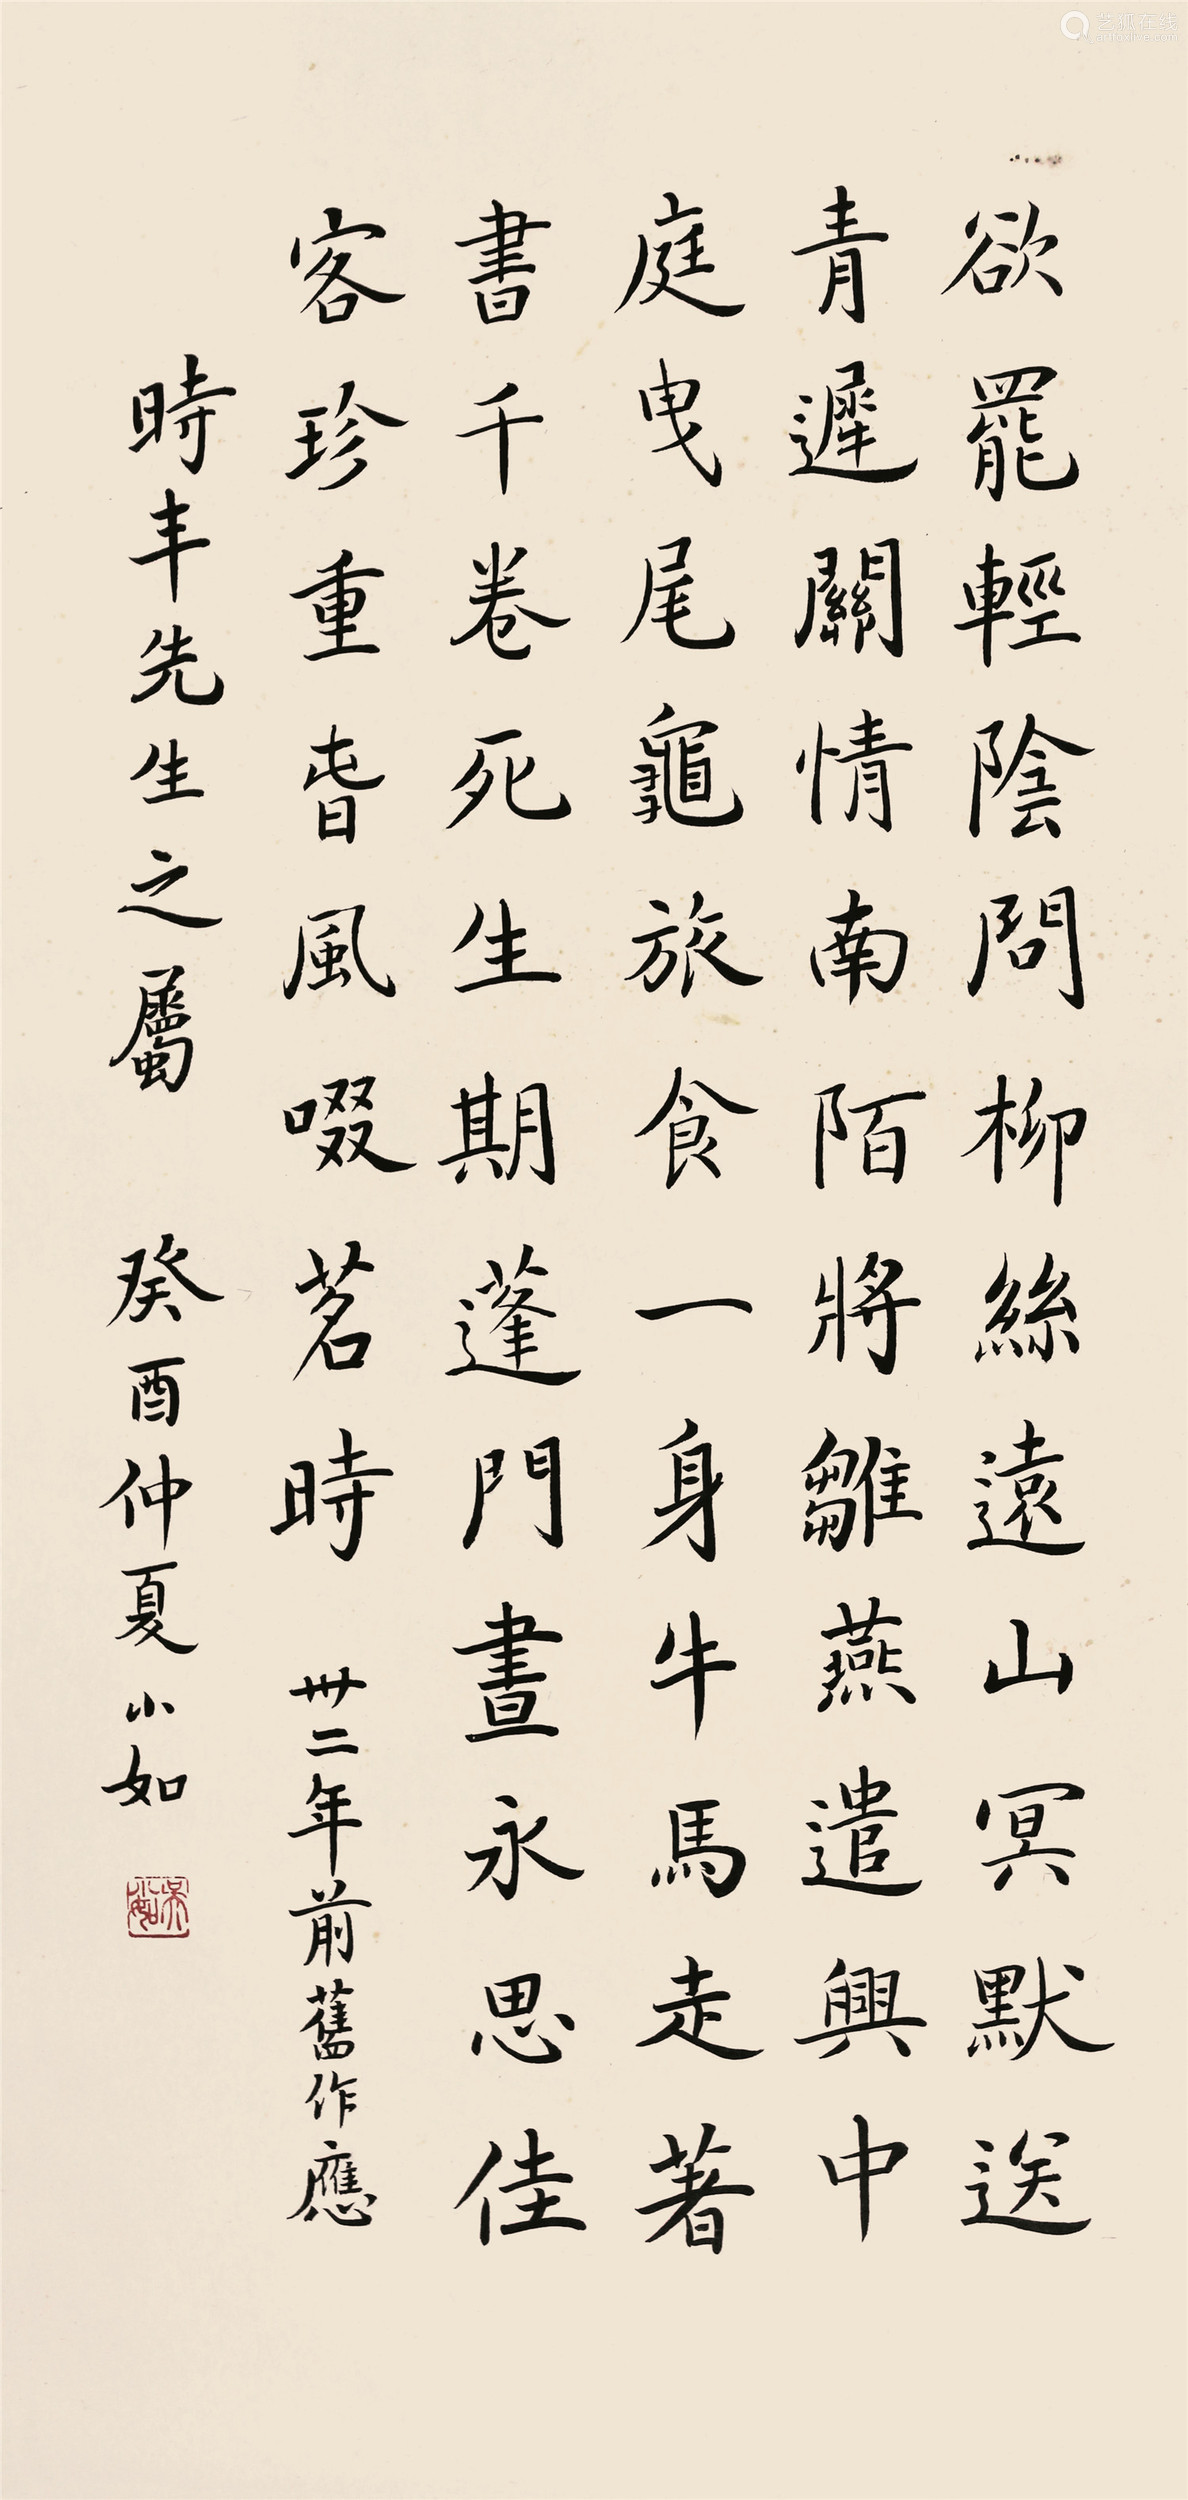 欲罷輕陰問柳絲遠山冥默送
青遲關情南陌將雛燕遣興中
庭曳尾龜旅食一身牛馬走著
書千卷死生期蓬門晝永思佳
客珍重旹風啜茗時 卅二年前舊作應
時丰先生之屬 癸酉仲夏小如
吳小如
艺狐在线
artfoxlive.com